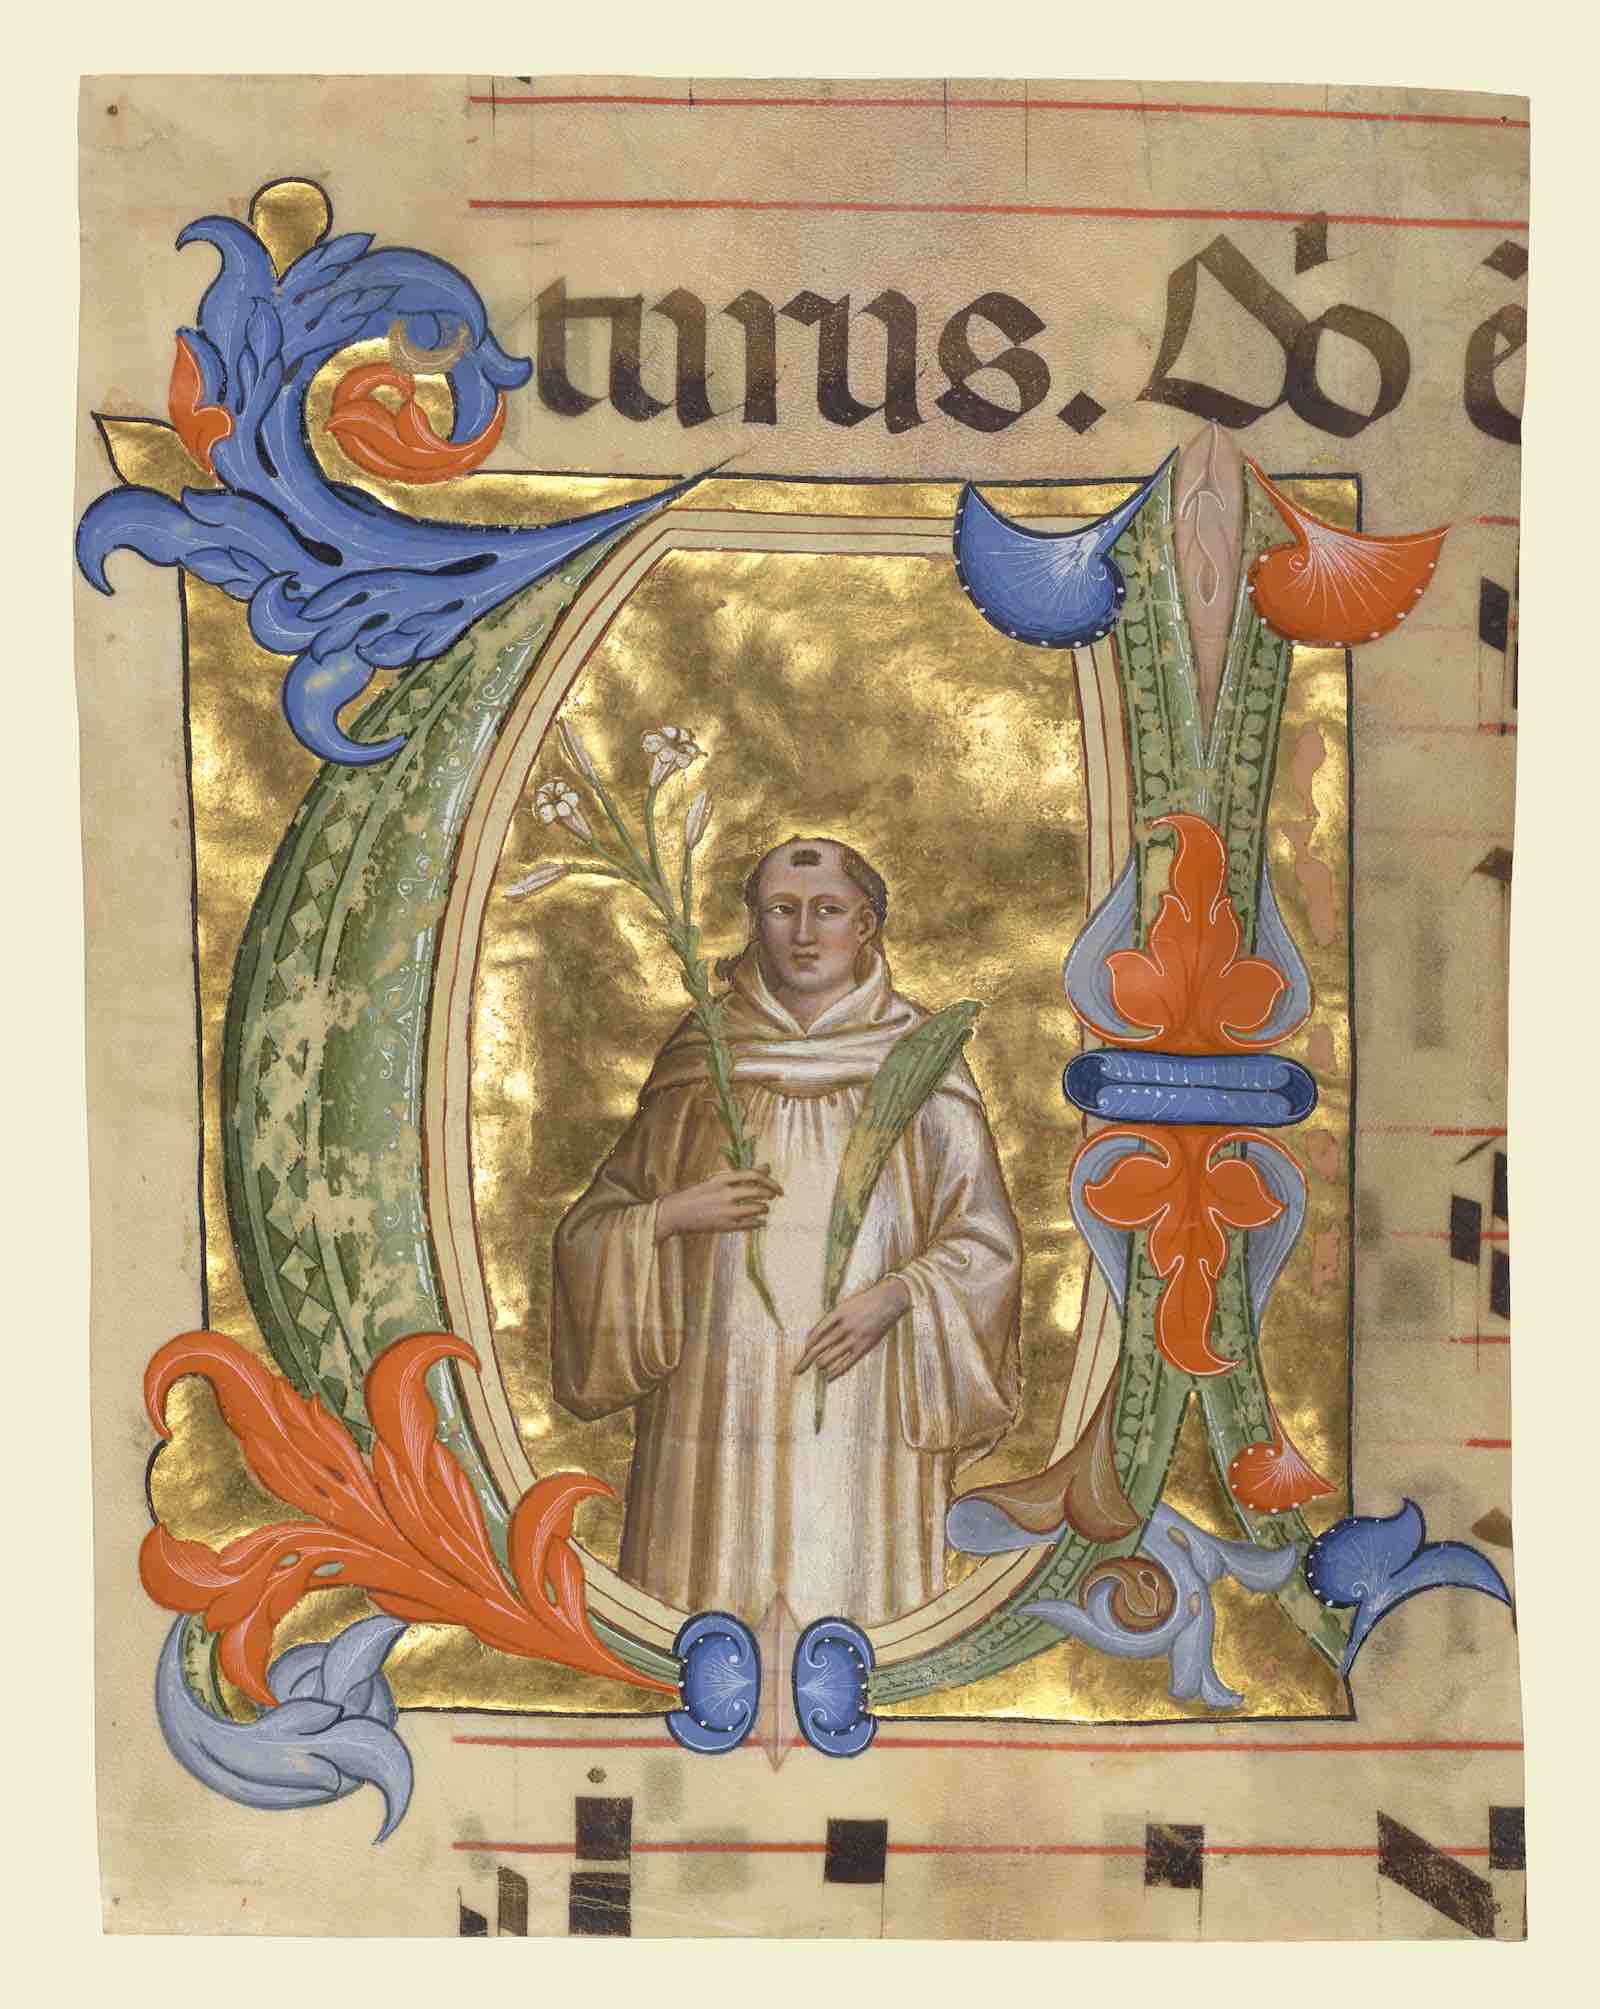 turus. Do ē